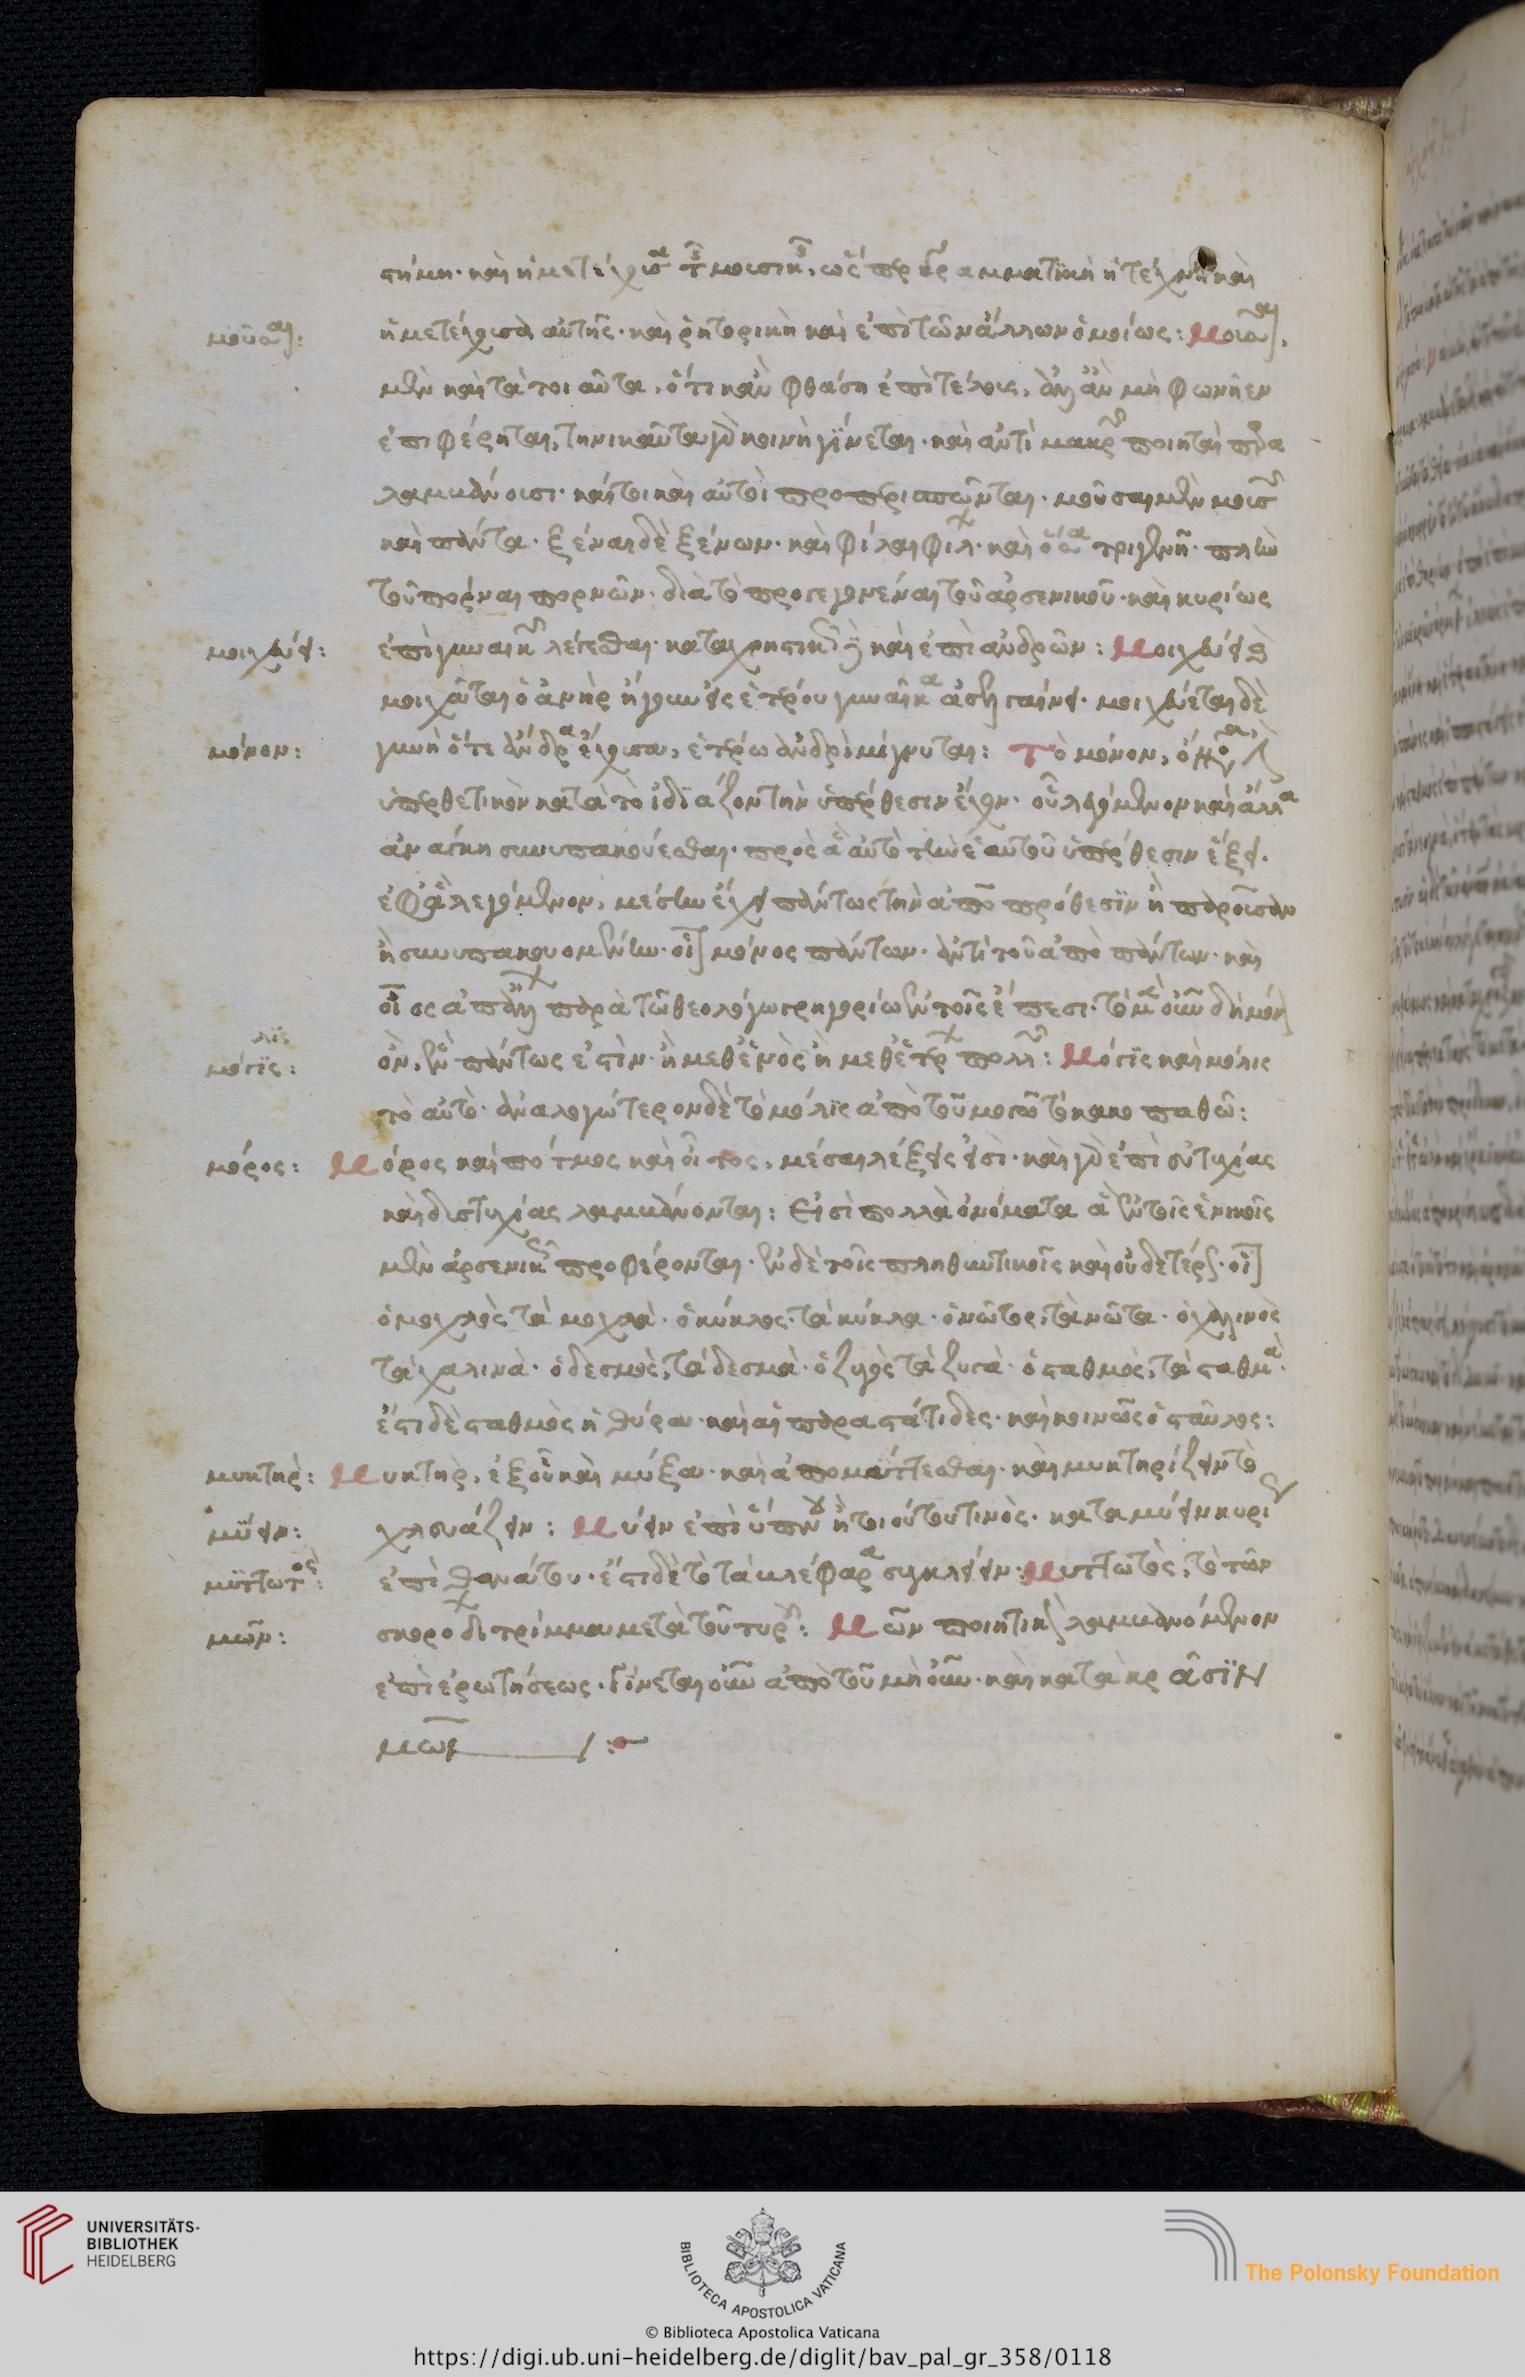 στήμη· καὶ ἡ μετέχουσα τῆς μουσικῆς, ὥσπερ γραμματικὴ ἡ τέχνη καὶ
μοῦσαι: ἡ μετέχουσα αὐτῆς· καὶ ῥητορικὴ καὶ ἐπὶ τῶν ἄλλων ὁμοίως: Μοῦσαι
μὲν καὶ τὰ τοιαῦτα, ὅτι κἂν φθάση ἐπὶ τέλους, μὴ φωνῆεν
ἐπιφέρηται, τηνικαῦτα κοινὴ γίνεται· καὶ ἀντὶ μακρᾶς ποιηταὶ
λαμβάνουσι· καίτοι καὶ αὐτοὶ προπερισπῶνται· μοῦσαι μὲν μουσῶν
καὶ πάντα· ξέναι δὲ ξένων· καὶ φίλαι φίλων· καὶ ὅσα τριγενῆ· πλὴν
τοῦ πόρναι πορνῶν· διὰ τὸ προτεγμέναι τοῦ ἀρσενικοῦ· καὶ κυρίως
μοιχεύει: ἐπὶ γυναικῶν λέγεσθαι· καταχρηστικῶς καὶ ἐπὶ ἀνδρῶν: Μοιχεύει
μοιχᾶται ὁ ἀνὴρ ἡγουν εἰς ἑτέρου γυναῖκα ἀσελγαίνει· μοιχεύεται δὲ
μόνον: γυνὴ ὅτε ἄνδρα ἔχουσα, ἑτέρω ἀνδρὶ μίγνυται: Τὸ μόνον,
ὑπερθετικὸν κατὰ τὸ ἰδιάζον τὴν ὑπέρθεσιν ἔχον· οὗ λεγόμενον καὶ ἄλλα
ἀνάγκη συνυπακούεσθαι· πρὸς ἃ αὐτὸ τὴν ἑαυτοῦ ὑπέρθεσιν ἕξει·
ἐφ' ἃ λεγόμενον, μέσην ἔχει πάντως τὴν ἀπὸ πρόθεσιν ἢ παροῦσαν
ἢ συνυπακουομένην· οἷον μόνος πάντων· ἀντὶ τοῦ ἀπὸ πάντων· καὶ
οἷος ἀπάντων παρὰ τῶ θεολόγω γρηγορίω ἐν τοῖς ἔπεσι· τὸ οὖν δὴ μόνον
μόγις: λις ὂν, ἓν πάντως ἐστὶν· ἢ μεθ' ἑνὸς ἢ μεθ' ἑτέρων πολλῶν: Μόγις καὶ μόλις
τὸ αὐτὸ· ἀναλογώτερον δὲ τὸ μόλις ἀπὸ τοῦ μογῶ τὸ κακοπαθῶ:
μόρος: Μόρος καὶ πότμος καὶ οἶτος, μέσαι λέξεις εἰσὶ· καὶ γὰρ ἐπὶ εὐτυχίας
καὶ δυστυχίας λαμβάνονται: Εἰσὶ πολλὰ ὀνόματα ἃ ἐν τοῖς ἑνικοῖς
μὲν ἀρσενικῶς προφέρονται· ἐν δὲ τοῖς πληθυντικοῖς καὶ οὐδετέρως· οἷον
ὁ μοχλὸς τὰ μοχλὰ· ὁ κύκλος· τὰ κύκλα· ὁ νῶτος, τὰ νῶτα· ὁ χαλινὸς
τὰ χαλινὰ· ὁ δεσμὸς, τὰ δεσμὰ· ὁ ζυγὸς τὰ ζυγὰ· ὁ σταθμὸς, τὰ σταθμὰ·
ἔστι δὲ σταθμὸς ἡ θύρα· καὶ αἱ παραστάτιδες· καὶ κοινῶς ὁ σταῦλος:
μυκτὴρ: Μυκτὴρ, ἐξ οὗ καὶ μύξα· καὶ ἀπομύττεσθαι· καὶ μυκτηρίζειν τὸ
μύειν: χλευάζειν: Μύειν ἐπὶ ὕπνου ἤτοι οὑτουτινὸς· καταμύειν κυρίως
μυττωτὸς: ἐπὶ θανάτου· ἔστι δὲ τὸ τὰ βλέφαρα συγκλείειν: Μυττωτὸς, τὸ τῶν
μῶν: σκορόδων τρίμμα μετὰ τοῦ τυροῦ: Μῶν ποιητικῶς λαμβανόμενον
ἐπὶ ἐρωτήσεως· Γίνεται οὖν ἀπὸ τοῦ μὴ οὖν· καὶ κατὰ κρᾶσιν
μῶν :
UNIVERSITÄTS-
BIBLIOTHEK
HEIDELBERG
BIBLIOTECA APOSTOLICA VATICANA
The Polonsky Foundation
© Biblioteca Apostolica Vaticana
https://digi.ub.uni-heidelberg.de/diglit/bav_pal_gr_358/0118